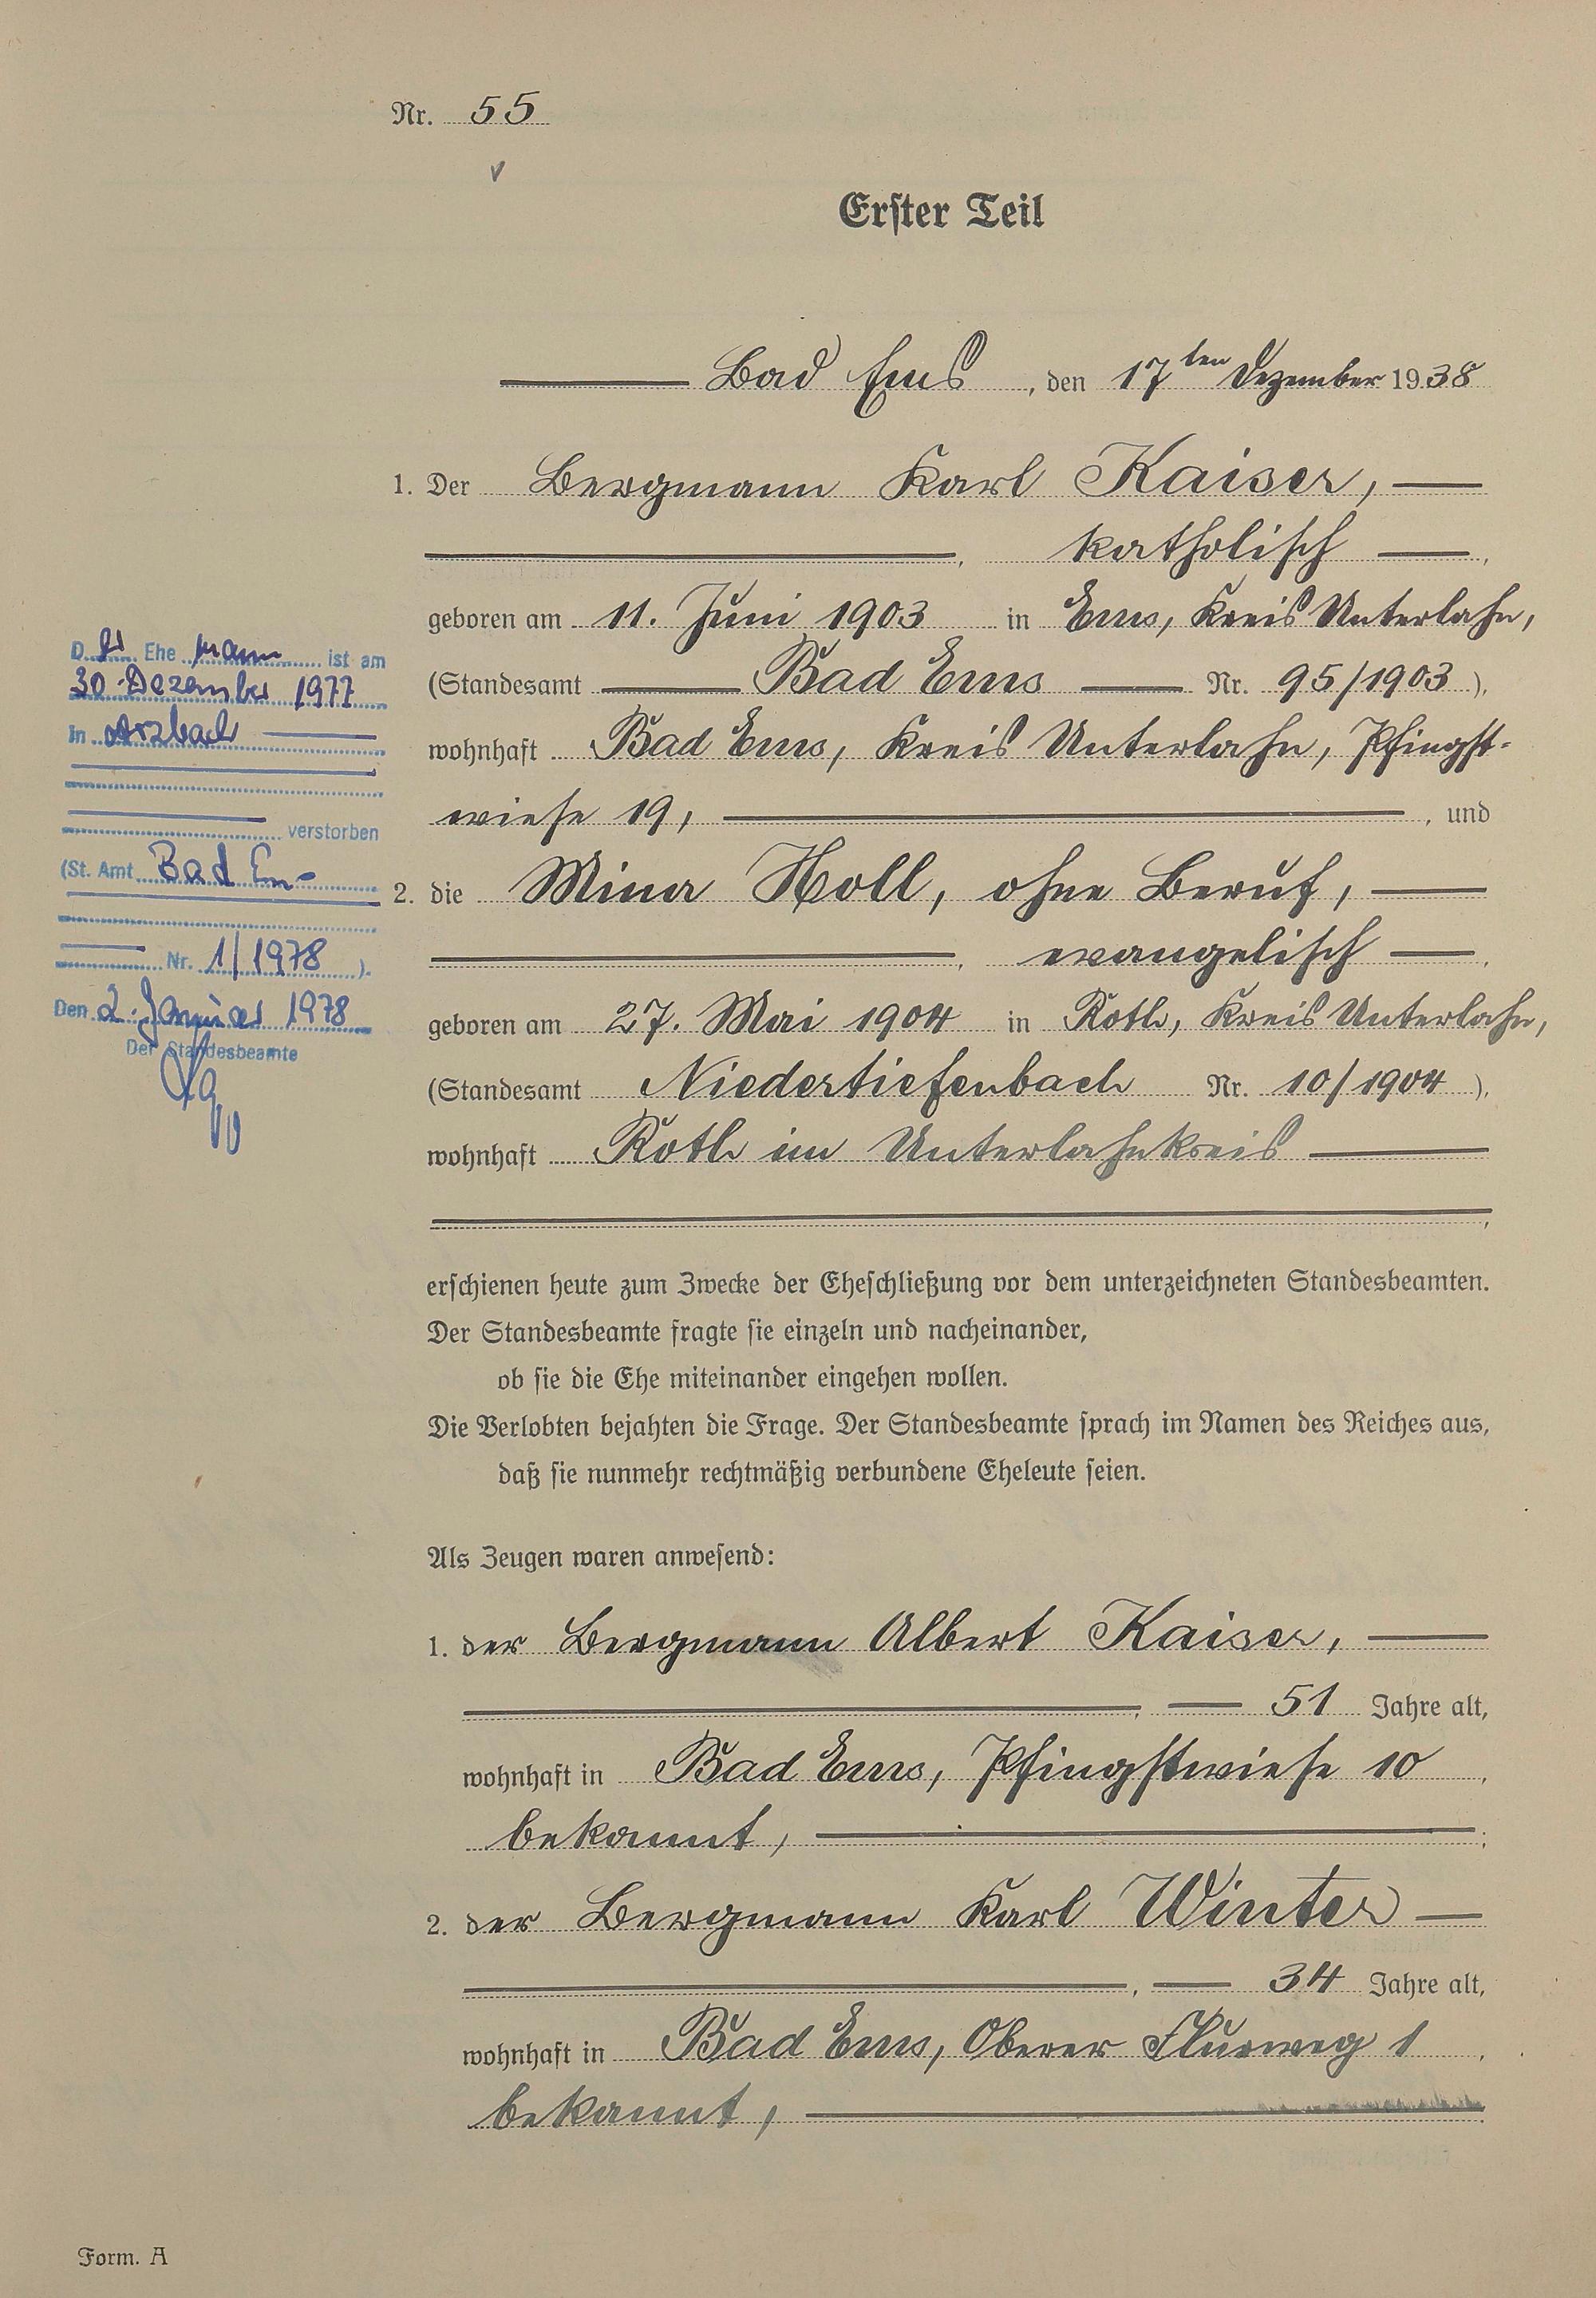 Nr. 55
Erster Teil
Bad Ems, den 17ten Dezember 1938
1. Der Bergmann Karl Kaiser,
katholisch,
geboren am 11. Juni 1903 in Ems, Kreis Unterlahn,
(Standesamt Bad Ems Nr. 95/1903),
wohnhaft Bad Ems, Kreis Unterlahn, Pfingst-
wiese 19, und
2. die Mina Noll, ohne Beruf,
evangelisch,
geboren am 27. Mai 1904 in Roth, Kreis Unterlahn,
(Standesamt Niedertiefenbach Nr. 10/1904),
wohnhaft Roth im Unterlahnkreis,
erschienen heute zum Zwecke der Eheschließung vor dem unterzeichneten Standesbeamten.
Der Standesbeamte fragte sie einzeln und nacheinander,
ob sie die Ehe miteinander eingehen wollen.
Die Verlobten bejahten die Frage. Der Standesbeamte sprach im Namen des Reiches aus,
daß sie nunmehr rechtmäßig verbundene Eheleute seien.
Als Zeugen waren anwesend:
1. der Bergmann Albert Kaiser,
51 Jahre alt,
wohnhaft in Bad Ems, Pfingstwiese 10,
bekannt,;
2. der Bergmann Karl Winter
, 34 Jahre alt,
wohnhaft in Bad Ems, Oberer Flurweg 1,
bekannt,
Der Ehemann ist am
30. Dezember 1977
in Arzbach
verstorben
(St. Amt Bad Ems
Nr. 1/1978).
Den 2. Januar 1978
Der Standesbeamte
Form. A